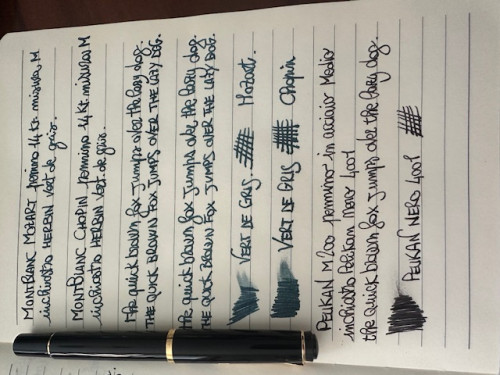 MONTBLANC MOZART pennino 14 kt. misura M
inchiostro HERBIN vert de gris.
MONTBLANC CHOPIN pennino 14 kt. misura M
inchiostro HERBIN vert de gris
the quick brown fox jumps over the lazy dog.
THE QUICK BROWN FOX JUMPS OVER THE LAZY DOG.
the quick brown fox jumps over the lazy dog.
THE QUICK BROWN FOX JUMPS OVER THE LAZY DOG.
VERT DE GRIS. Mozart.
VERT DE GRIS Chopin
PELIKAN M200 pennino in acciaio medio
inchiostro Pelikan Nero 4001
the quick brown fox jumps over the lazy dog.
PELIKAN NERO 4001